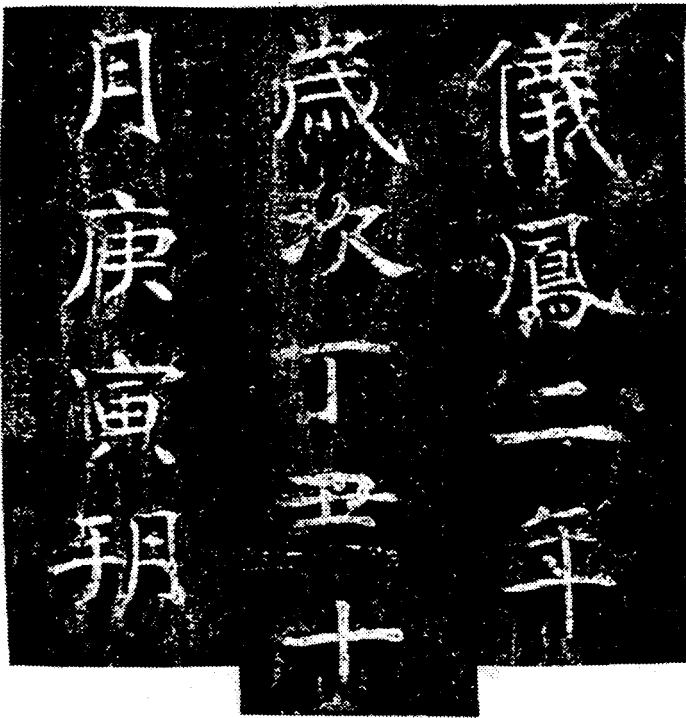 儀鳳二年
歲次丁丑十
月庚寅朔